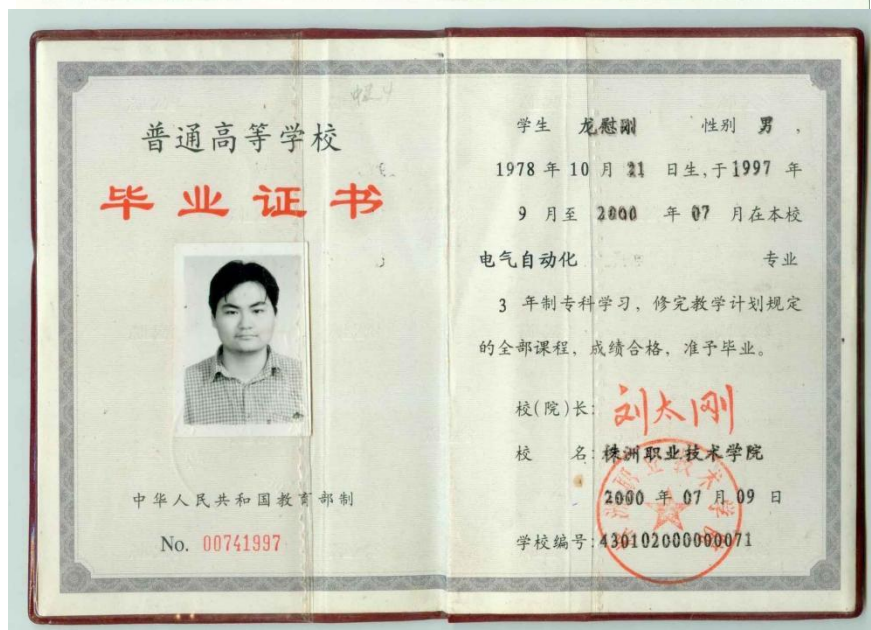 普通高等学校
毕业证书
中华人民共和国教育部制
No. 00741997
学生 龙慰刚 性别 男,
1978 年 10 月 21 日生,于1997 年
9 月至 2000 年 07 月在本校
电气自动化 专业
3 年制专科学习,修完教学计划规定
的全部课程,成绩合格,准予毕业。
校(院)长: 刘太刚
校 名:株洲职业技术学院
2000 年 07 月 09 日
学校编号:430102000000071